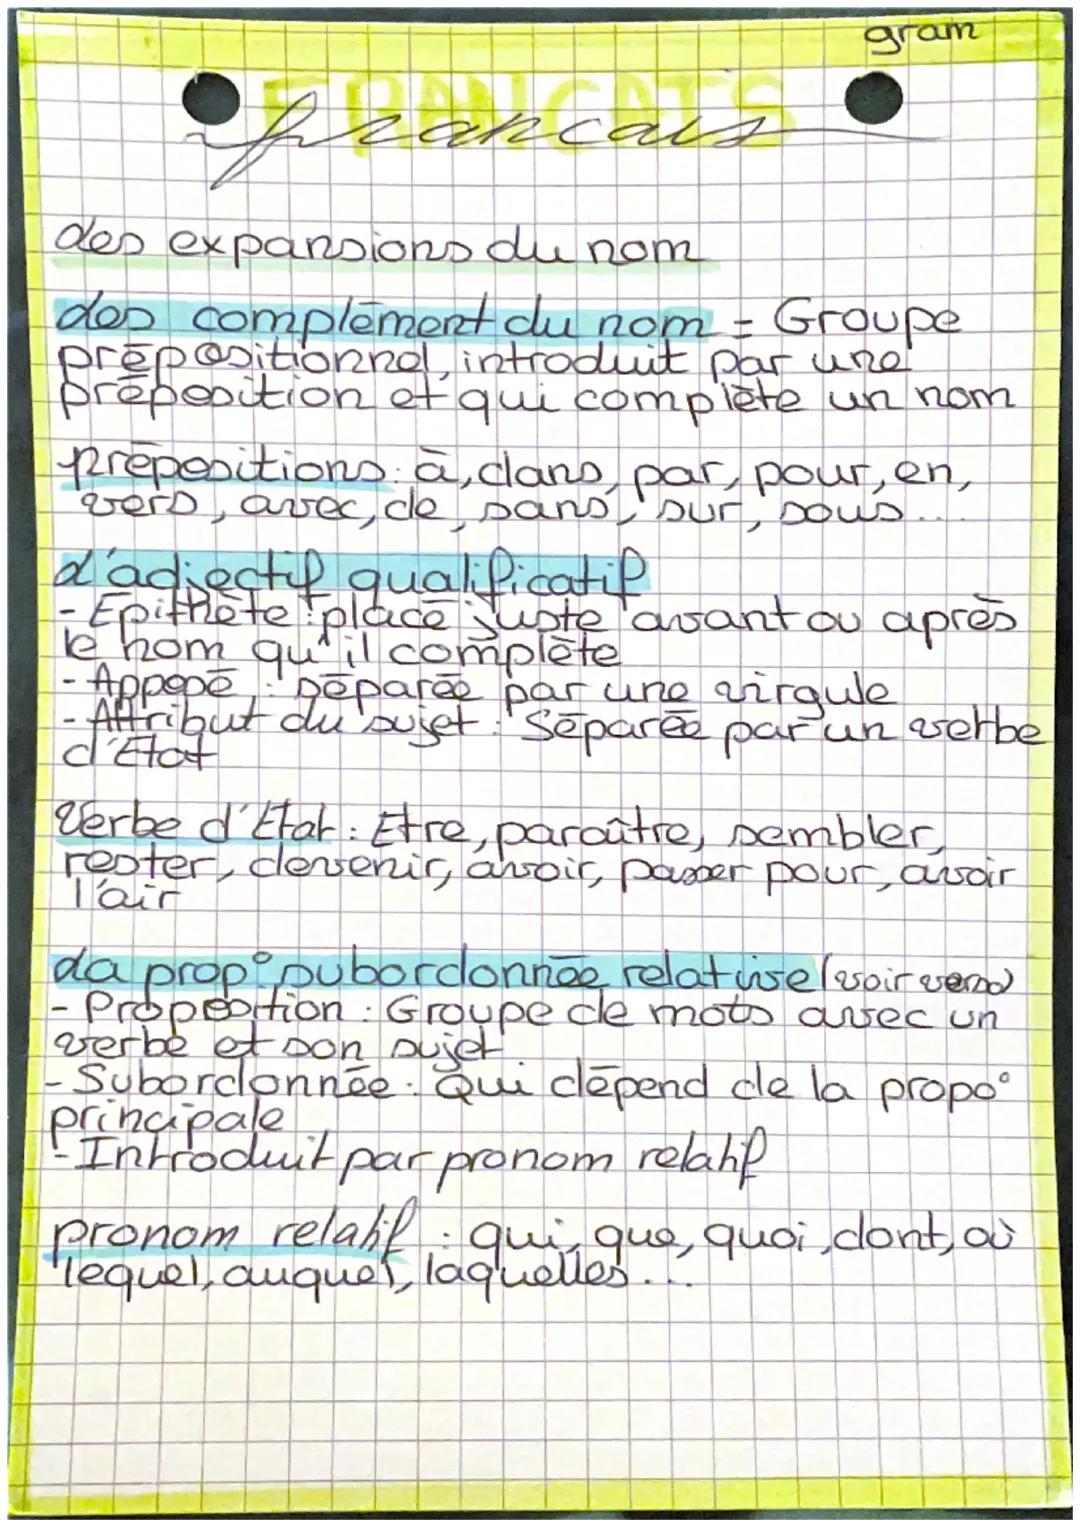 gram
FRANCAIS
francais
Les expansions du nom
Les complément du nom = Groupe
prépositionnel, introduit par une
préposition et qui complète un nom
prépositions : à, dans, par, pour, en,
vers, avec, de, sans, sur, sous...
L'adjectif qualificatif
- Epithète : placé juste avant ou après
le nom qu'il complète
- Apposé : séparée par une virgule
- Attribut du sujet : Séparée par un verbe
d'Etat
Verbe d'Etat : Etre, paraître, sembler,
rester, devenir, avoir, passer pour, avoir
l'air
La prop° subordonnée relative (voir verso)
- Proposition : Groupe de mots avec un
verbe et son sujet
- Subordonnée : Qui dépend de la propo°
principale
- Introduit par pronom relatif
pronom relatif : qui, que, quoi, dont, où
lequel, auquel, laquelles...